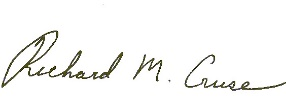 Richard M. Cruse